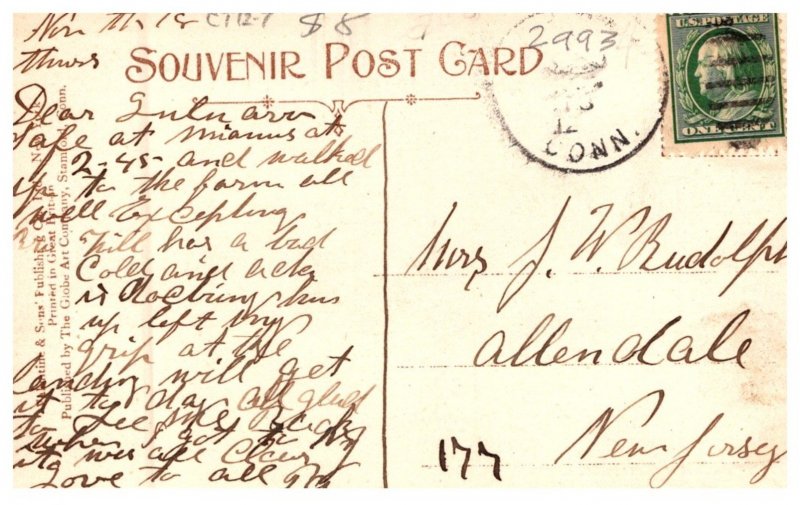 Nov 11 12
thurs
88
SOUVENIR POST CARD
2993
12
CONN.
U.S. POSTAGE
ONE CENT
Dear Lulu arr
safe at Mianus at
2-45- and walked
up to the farm all
well Excepting
Will has a bad
Cold and
is doctring him
up left my
grip at the
landing will get
it to day all glad
to see me
when I got to NY
it was all Clear
Love to all
Valentine & Sons' Publishing Co., Ltd.
Printed in Great Britain
Published by The Globe Art Company, Stamford, Conn.
Mrs J. W. Rudolph
Allendale
New Jersey
177